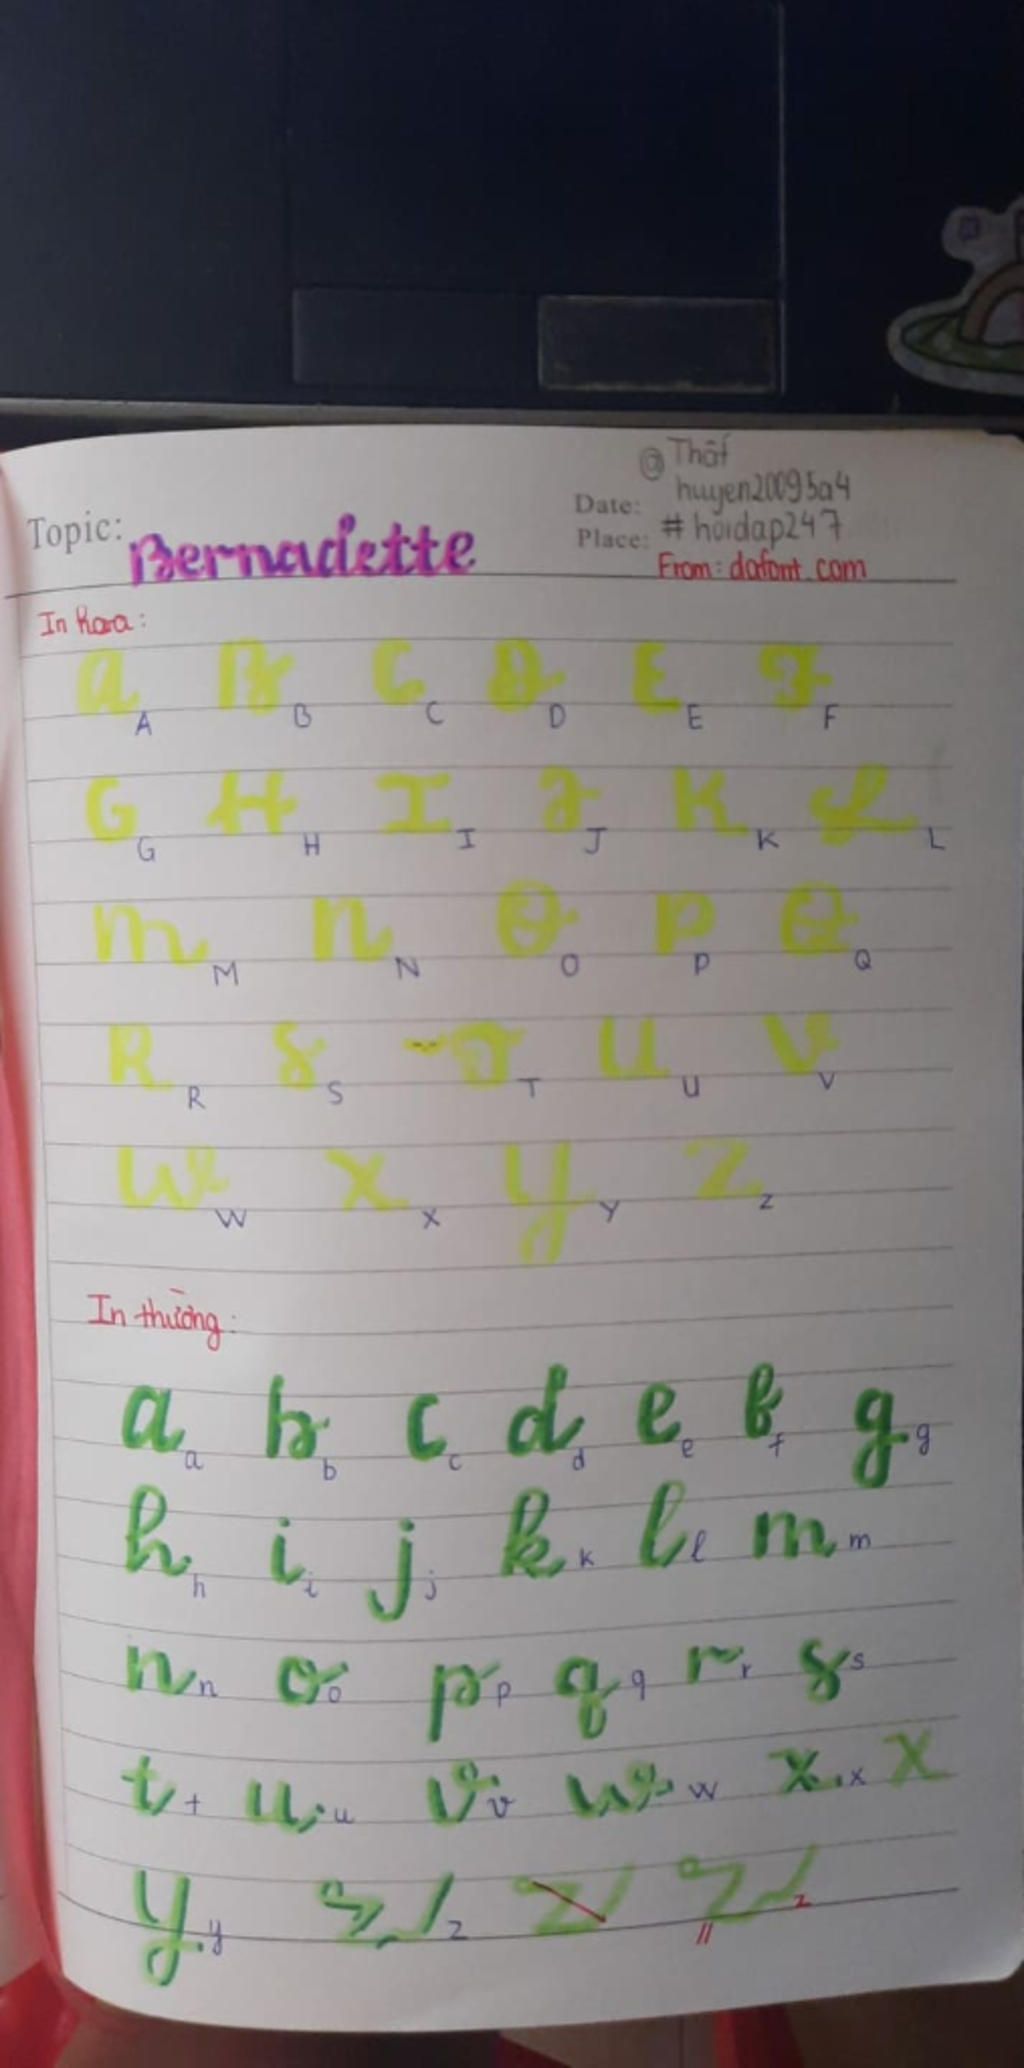 @ Thất
huyen20095a4
Date:
Topic: Bernadette
Place: # hoidap247
From: dafont.com
In hoa:
a A B B C C D D E E F F
G G H H I I J J K K L L
m M n N O O P P Q Q
R R S S T T U U V V
W W X X y Y Z Z
In thường:
a a b b c c d d e e f f g g
h h i i j j k k l l m m
n n o o p p q q r r s s
t t u u v v w w x x x
y y z z z z z